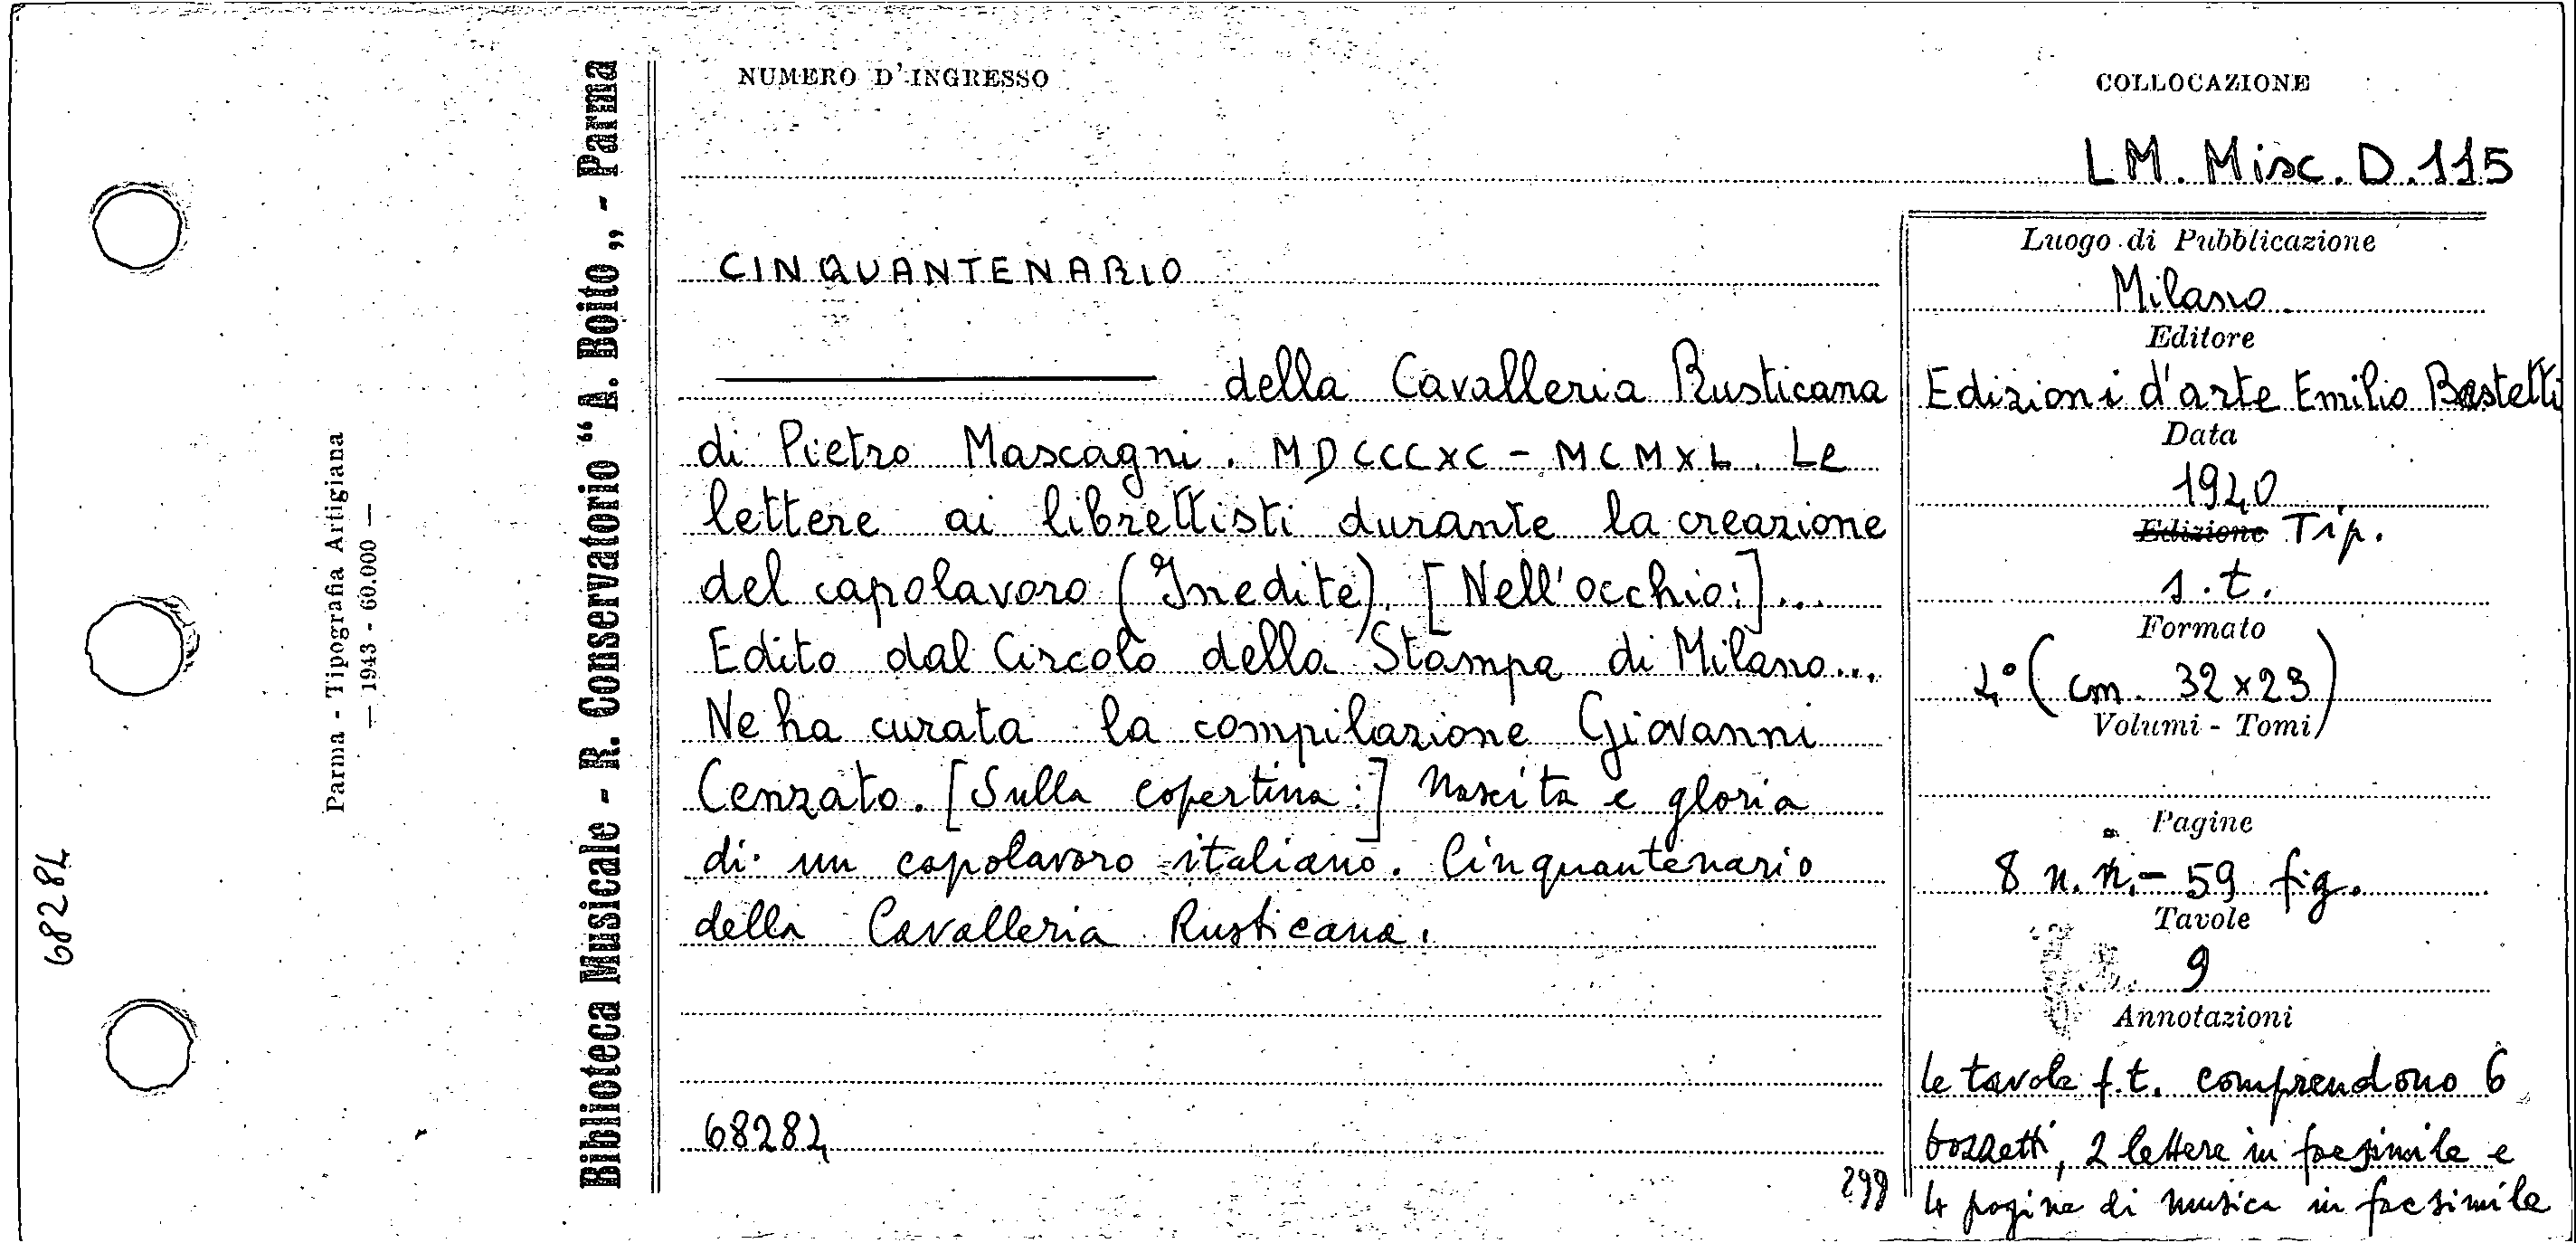 NUMERO D'INGRESSO
COLLOCAZIONE
LM. Misc. D. 115
CINQUANTENARIO
della Cavalleria Rusticana
di Pietro Mascagni. MDCCCXC - MCMXL. Le
lettere ai librettisti durante la creazione
del capolavoro (Inedite). [Nell'occhio:]...
Edito dal Circolo della Stampa di Milano...
Ne ha curata la compilazione Giovanni
Cenzato. [Sulla copertina:] Nascita e gloria
di un capolavoro italiano. Cinquantenario
della Cavalleria Rusticana.
68284
299
Luogo di Pubblicazione
Milano
Editore
Edizioni d'arte Emilio Bestetti
Data
1940
Edizione Tip.
s.t.
Formato
4° (cm. 32x23)
Volumi - Tomi
Pagine
8 n. n. - 59 fig.
Tavole
9
Annotazioni
le tavole f.t. comprendono 6
bozzetti, 2 lettere in facsimile e
4 pagine di musica in facsimile
Biblioteca Musicale - R. Conservatorio “A. Boito„ - Parma
Parma - Tipografia Artigiana
— 1943 - 60.000 —
68284